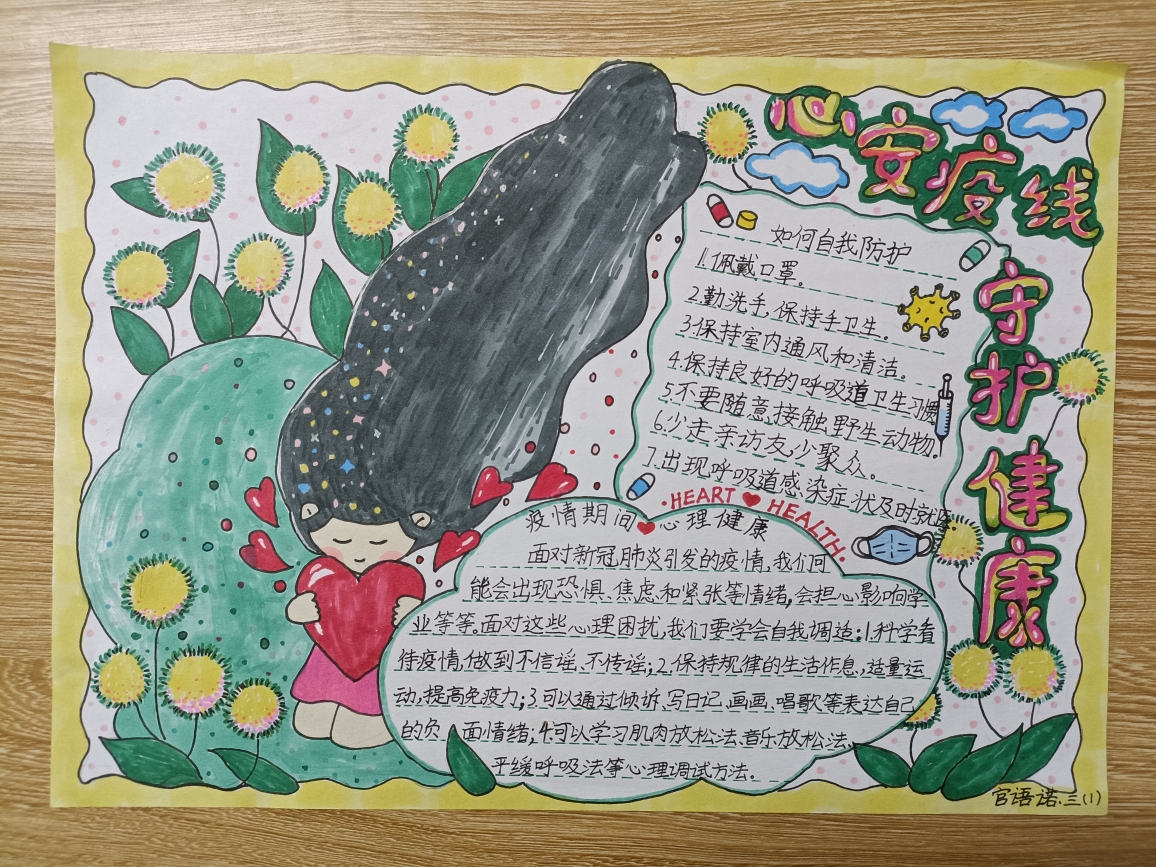 心安疫线
守护健康
如何自我防护
1.佩戴口罩。
2.勤洗手,保持手卫生。
3.保持室内通风和清洁。
4.保持良好的呼吸道卫生习惯
5.不要随意接触野生动物。
6.少走亲访友少聚众。
7.出现呼吸道感染症状及时就医。
·HEART HEALTH·
疫情期间 心理健康
面对新冠肺炎引发的疫情,我们可
能会出现恐惧、焦虑和紧张等情绪,会担心影响学
业等等。面对这些心理困扰,我们要学会自我调适:1.科学看
待疫情,做到不信谣、不传谣;2.保持规律的生活作息,适量运
动,提高免疫力;3.可以通过倾诉、写日记、画画、唱歌等表达自己
的负面情绪;4.可以学习肌肉放松法、音乐放松法、
平缓呼吸法等心理调试方法。
官语诺.三(1)